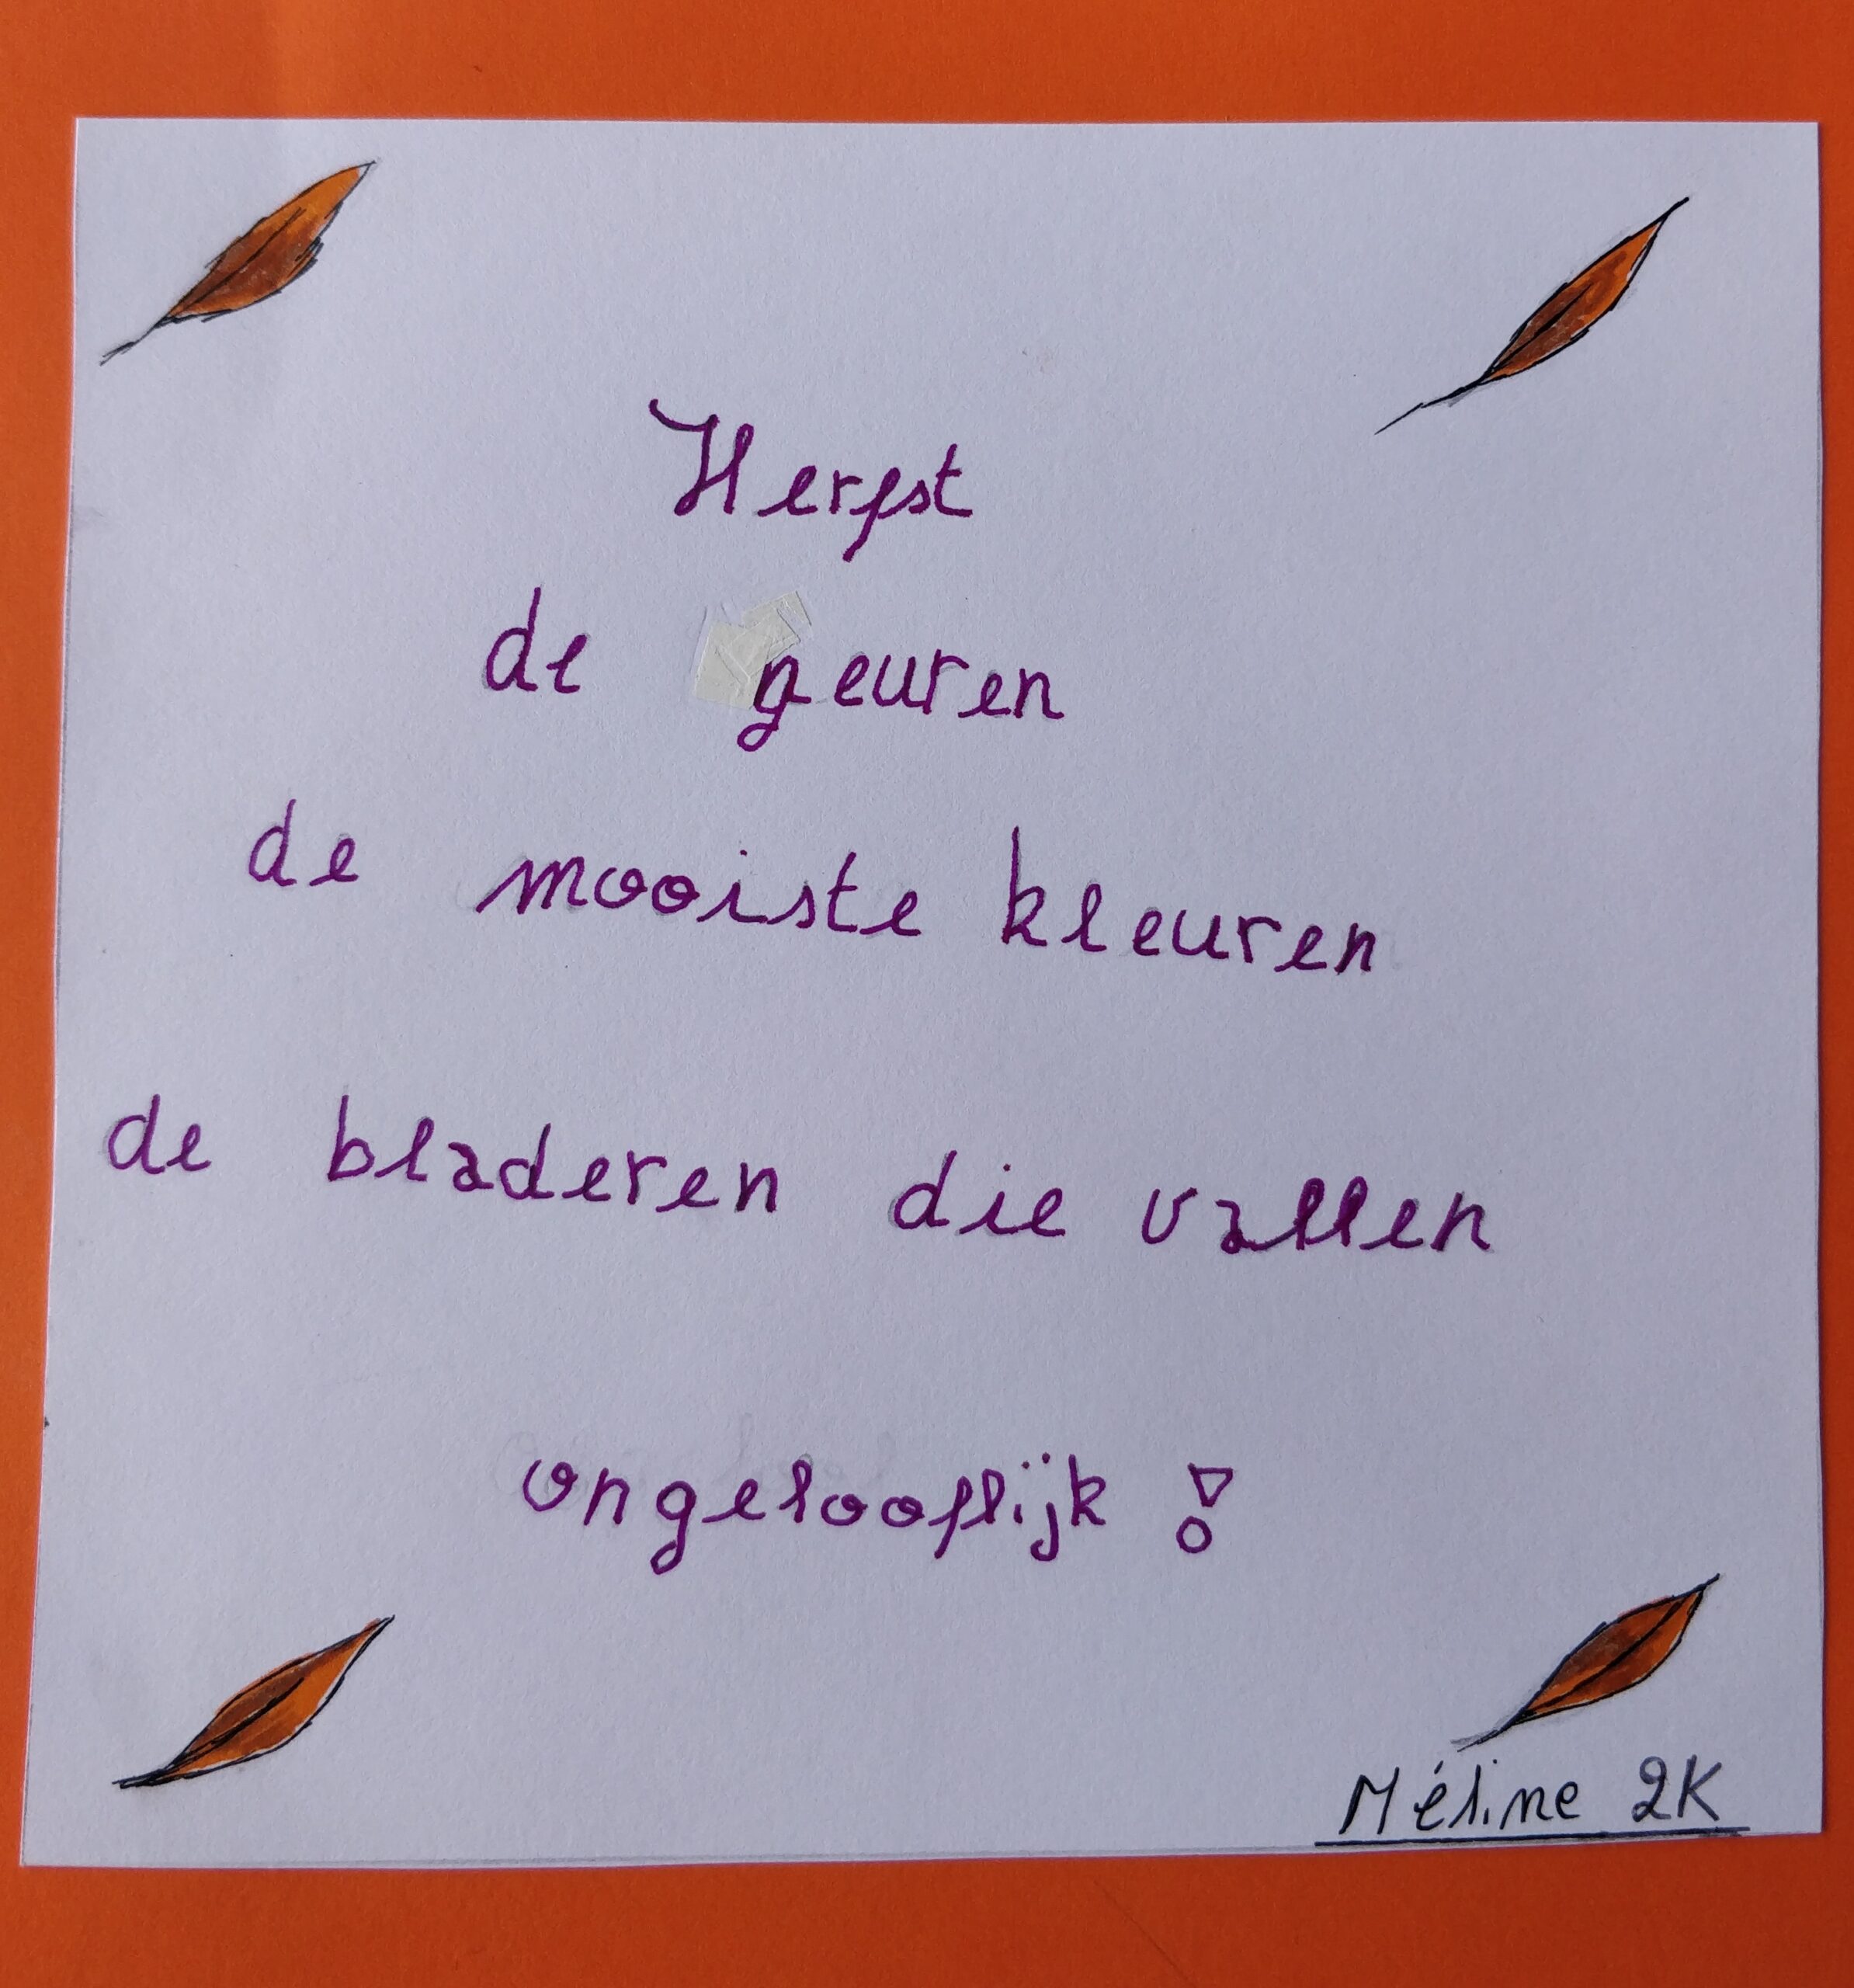 Herfst
de geuren
de mooiste kleuren
de bladeren die vallen
ongelooflijk !
Méline 2K